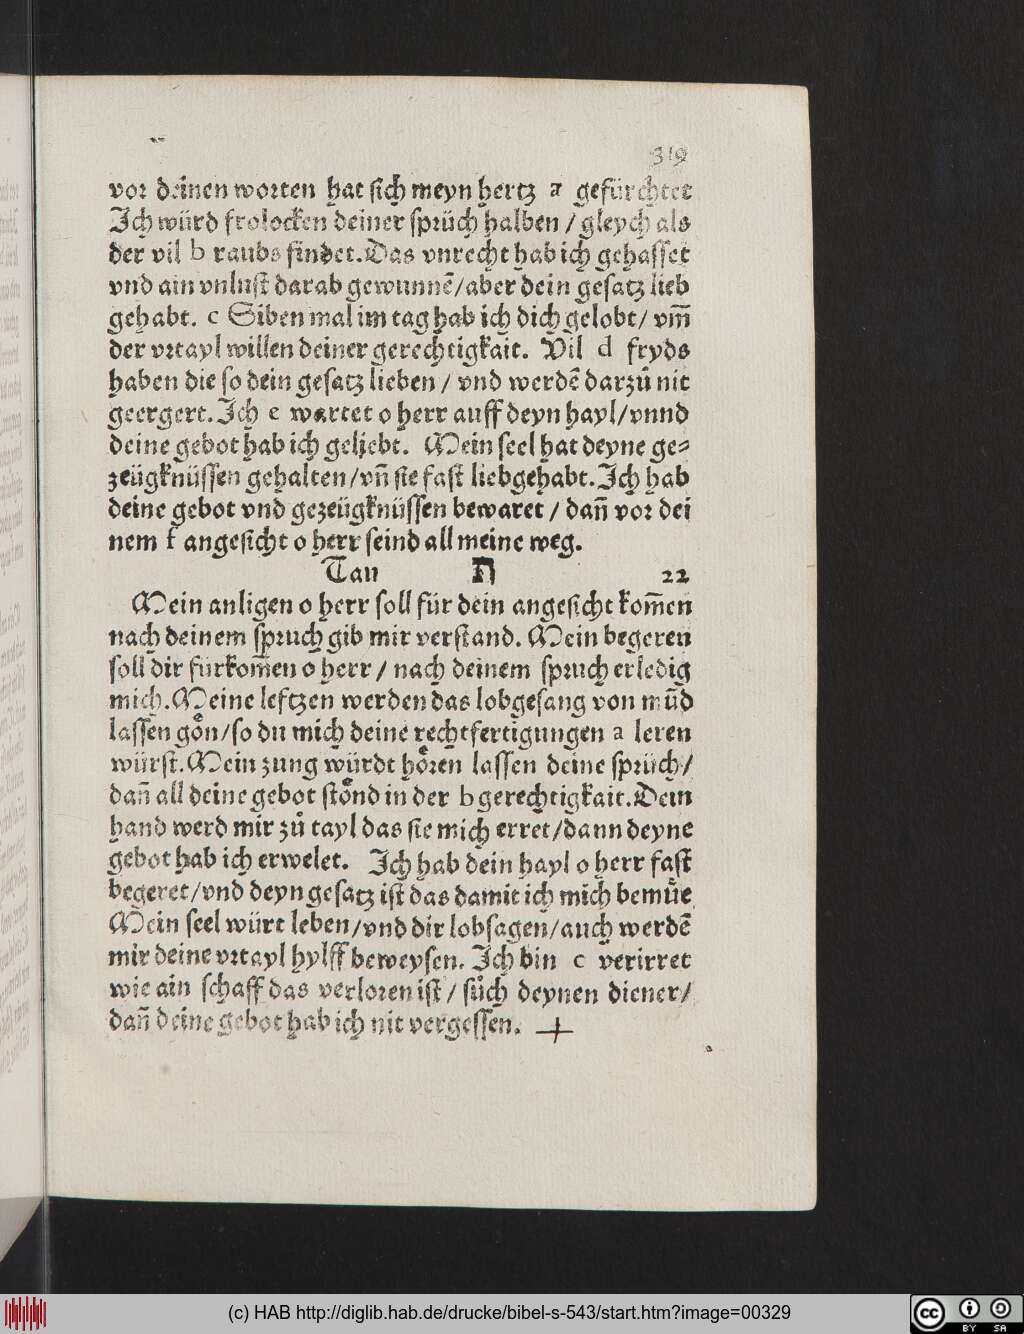 319
vor deinen worten hat sich meyn hertz a gefürchtet
Ich würd frolocken deiner sprüch halben / gleych als
der vil b raubs findet. Das vnrecht hab ich gehasset
vnd ain vnlust darab gewunnē/aber dein gesatz lieb
gehabt. c Siben mal im tag hab ich dich gelobt/ vm̄
der vrtayl willen deiner gerechtigkait. Vil d fryds
haben die so dein gesatz lieben / vnd werdē darzů nit
geergert. Ich e wartet o herr auff deyn hayl/vnnd
deine gebot hab ich geliebt. Mein seel hat deyne ge⸗
zeügknüssen gehalten/vn̄ sie fast liebgehabt. Ich hab
deine gebot vnd gezeügknüssen bewaret / dan̄ vor dei
nem f angesicht o herr seind all meine weg.
Tau ת 22
Mein anligen o herr soll für dein angesicht kom̄en
nach deinem spruch gib mir verstand. Mein begeren
soll dir fürkom̄en o herr / nach deinem spruch erledig
mich. Meine leftzen werden das lobgesang von mūd
lassen goͤn/so du mich deine rechtfertigungen a leren
würst. Mein zung würdt hoͤren lassen deine sprüch/
dan̄ all deine gebot stoͤnd in der b gerechtigkait. Dein
hand werd mir zů tayl das sie mich erret/dann deyne
gebot hab ich erwelet. Ich hab dein hayl o herr fast
begeret/vnd deyn gesatz ist das damit ich mich bemuͤe
Mein seel würt leben/vnd dir lobsagen/auch werdē
mir deine vrtayl hylff beweysen. Ich bin c verirret
wie ain schaff das verloren ist / sůch deynen diener/
dan̄ deine gebot hab ich nit vergessen.
(c) HAB http://diglib.hab.de/drucke/bibel-s-543/start.htm?image=00329
cc BY SA